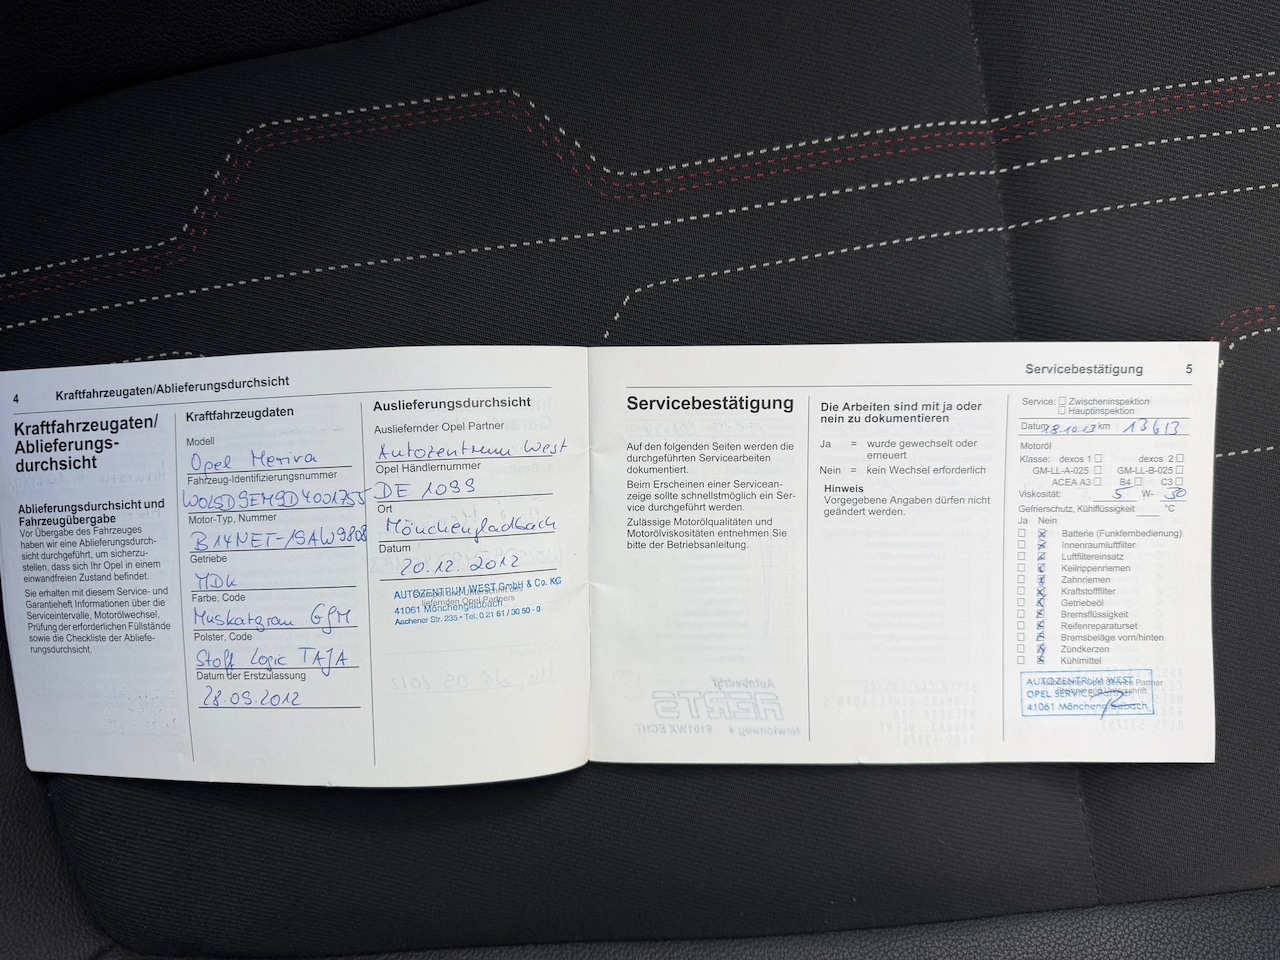 4 Kraftfahrzeugaten/Ablieferungsdurchsicht
Kraftfahrzeugaten/
Ablieferungs-
durchsicht
Ablieferungsdurchsicht und
Fahrzeugübergabe
Vor Übergabe des Fahrzeuges
haben wir eine Ablieferungsdurch-
sicht durchgeführt, um sicherzu-
stellen, dass sich Ihr Opel in einem
einwandfreien Zustand befindet.
Sie erhalten mit diesem Service- und
Garantieheft Informationen über die
Serviceintervalle, Motorölwechsel,
Prüfung der erforderlichen Füllstände
sowie die Checkliste der Abliefe-
rungsdurchsicht.
Kraftfahrzeugdaten
Modell
Opel Meriva
Fahrzeug-Identifizierungsnummer
W0LSD9EM9D4001755
Motor-Typ, Nummer
B14NET-19AW9808
Getriebe
MDK
Farbe, Code
Muskatgrau G6M
Polster, Code
Stoff Logic TAJA
Datum der Erstzulassung
28.09.2012
Auslieferungsdurchsicht
Ausliefernder Opel Partner
Autozentrum West
Opel Händlernummer
DE 1099
Ort
Mönchengladbach
Datum
20.12.2012
AUTOZENTRUM WEST GmbH & Co. KG
liefernden Opel Partners
41061 Mönchengladbach
Aachener Str. 235 • Tel. 0 21 61 / 30 50 - 0
Servicebestätigung 5
Servicebestätigung
Auf den folgenden Seiten werden die
durchgeführten Servicearbeiten
dokumentiert.
Beim Erscheinen einer Servicean-
zeige sollte schnellstmöglich ein Ser-
vice durchgeführt werden.
Zulässige Motorölqualitäten und
Motorölviskositäten entnehmen Sie
bitte der Betriebsanleitung.
Die Arbeiten sind mit ja oder
nein zu dokumentieren
Ja = wurde gewechselt oder
erneuert
Nein = kein Wechsel erforderlich
Hinweis
Vorgegebene Angaben dürfen nicht
geändert werden.
Service: Zwischeninspektion
Hauptinspektion
Datum 18.10.13 km 13613
Motoröl
Klasse: dexos 1 dexos 2
GM-LL-A-025 GM-LL-B-025
ACEA A3 B4 C3
Viskosität: 5 W- 30
Gefrierschutz, Kühlflüssigkeit °C
Ja Nein
Batterie (Funkfernbedienung)
Innenraumluftfilter
Luftfiltereinsatz
Keilrippenriemen
Zahnriemen
Kraftstofffilter
Getriebeöl
Bremsflüssigkeit
Reifenreparaturset
Bremsbeläge vorn/hinten
Zündkerzen
Kühlmittel
AUTOZENTRUM WEST
OPEL SERVICE
41061 Mönchengladbach